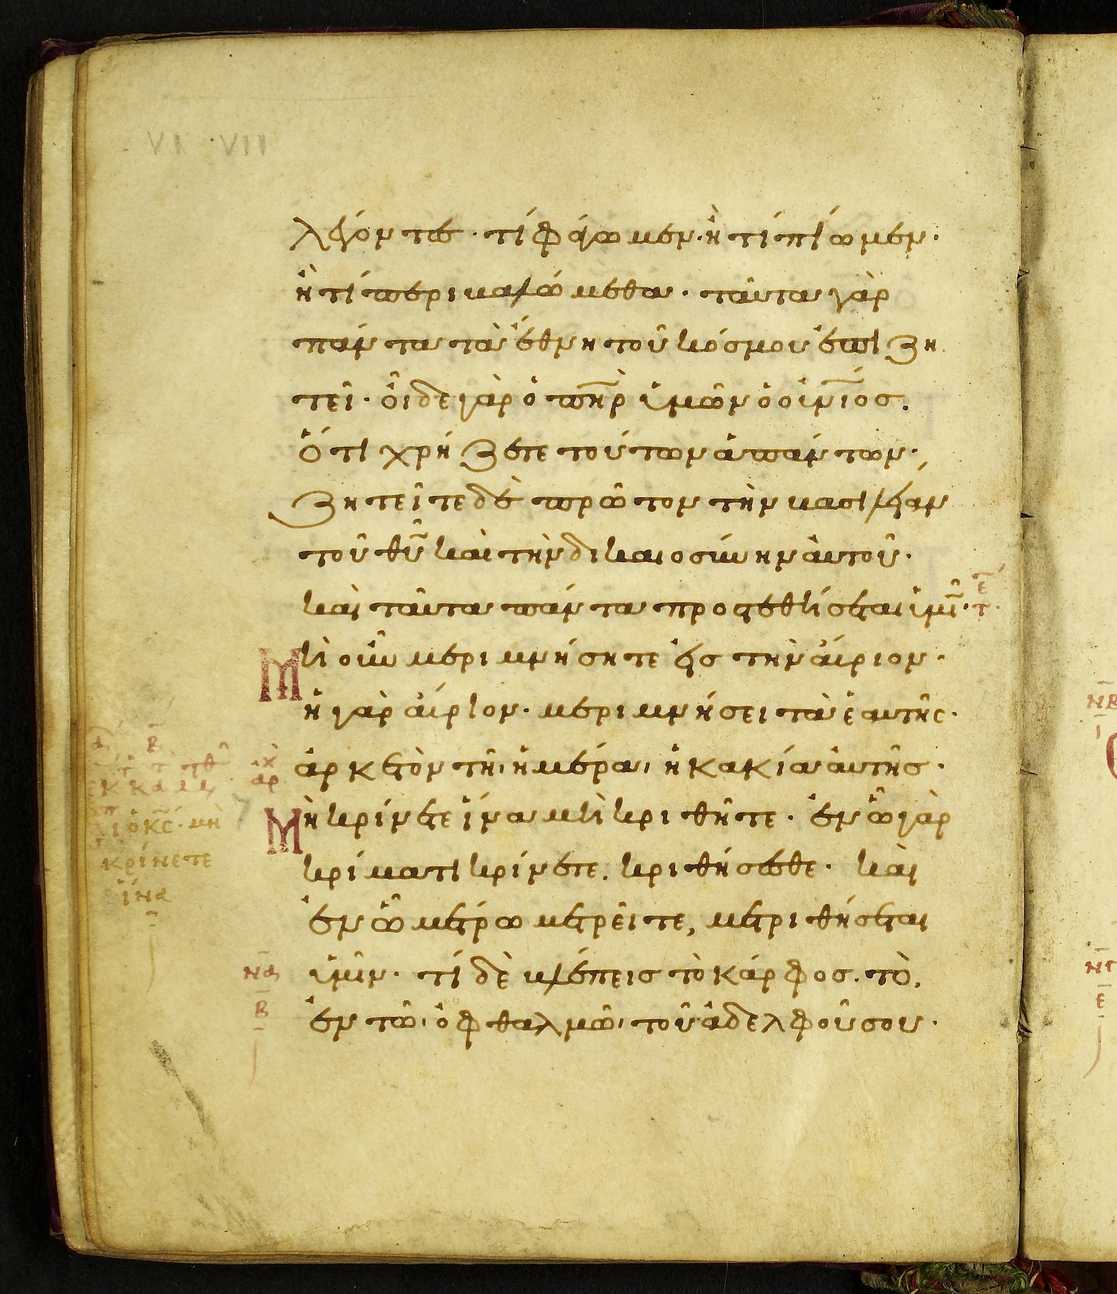 VI VII
λέγοντες· τί φάγωμεν· ἢ τί πίωμεν·
ἢ τί περιβαλώμεθα· ταῦτα γὰρ
πάντα τὰ ἔθνη τοῦ κόσμου ἐπιζη
τεῖ· οἶδε γὰρ ὁ π̅η̅ρ ὑμῶν ὁ οὐ̅ν̅ιος.
ὅτι χρήζετε τούτων ἁπάντων·
Ζητεῖτε δὲ πρῶτον τὴν βασιλείαν
τοῦ θ̅υ̅ καὶ τὴν δικαιοσύνην αὐτοῦ·
καὶ ταῦτα πάντα προστεθήσεται ὑμῖν· τε
Μὴ οὖν μεριμνήσητε εἰς τὴν αὔριον·
ἡ γὰρ αὔριον· μεριμνήσει τὰ ἑαυτῆς·
αρχ
ἀρκετὸν τῇ ἡμέρα, ἡ κακία αὐτῆς·
Μὴ κρίνετε ἵνα μὴ κριθῆτε· ἐν ᾧ γὰρ
κρίματι κρίνετε. κριθήσεσθε· καὶ
ἐν ᾧ μέτρω μετρεῖτε, μετριθήσεται
ὑμῖν· τί δὲ βλέπεις τὸ κάρφος. τὸ,
ἐν τῶ ὀφθαλμῶ, τοῦ ἀδελφοῦ σου·
ὁ κ̅ς̅· μὴ
κρίνετε
ἵνα
να
β